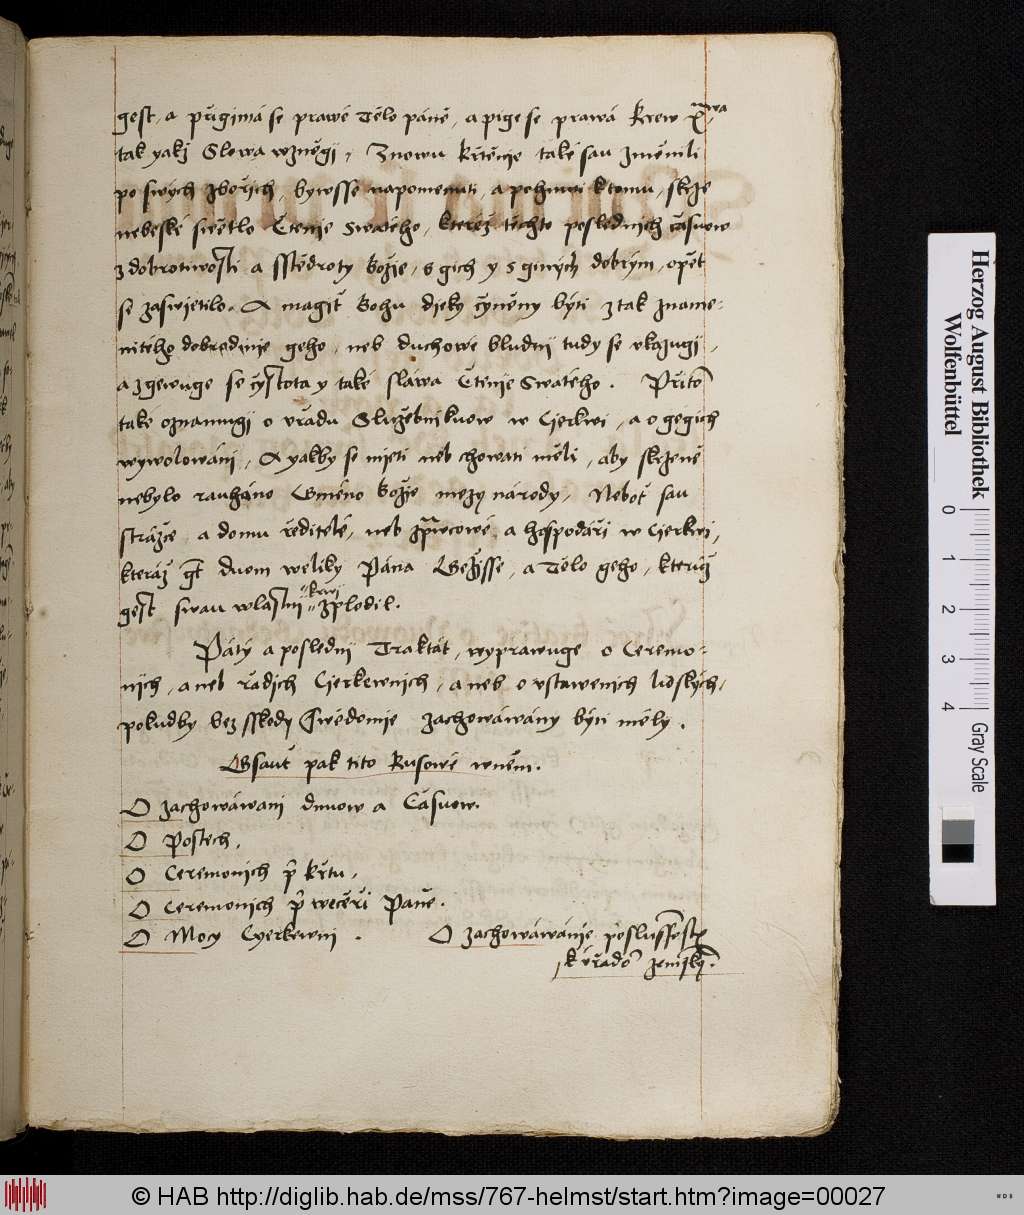 gest, a přigimá se prawé Tělo páně, a pige se prawá Krew X̃wa
tak yakž Slowa wzněgj, Znowu křtěnie také sau změnili
po swých zbořjch, bywsse napomenuti, a pohnuti k tomu, skrze
nebeské swětlo Čtenie Swatého, kteréž těchto poslednjch časuow
z dobrotiwosti a sstědroty Božie, s gich y s giných dobrým, opět
se zaswietilo. A magiť Bohu djeky čyněny býti z tak zname-
nitého dobrodinie geho, neb duchowé bludnj tudy se vkazugj,
a zgewuge se čystota y také sláwa Čtenie Swatého. Přitõ
také oznamugj o vřadu Služebnikuow w Cjerkwi, a o gegich
wywolowánj, A yakby se mjeti neb chowati měli, aby skrze ně
nebylo rauháno Gméno Božie mezy národy, Neboť sau
strážce a domu ředitelé, neb zp̃wcowé, a hospodáři w Cjerkwi,
kteráž gt̃ duom weliky Pána Gežjsse, a Tělo geho, kterúž
gest swau wlastnj krwj zplodil.
Pátý a poslednj Traktát, wyprawuge o Ceremo-
nich, aneb řádich Cjerkewnich, aneb o vstawenich lidských,
pokudby bez sskody Swědomie zachowáwány býti měly.
Gsauť pak tito Kusowé w něm.
O zachowáwánj dnuow a Časuow.
O Postech.
O Ceremonich př křtu,
O Ceremonich př wečeři Páně.
O Mocy Cyerkewnj. O zachowáwánie poslussẽstwj
k vřadõ zemským.
Herzog August Bibliothek
Wolfenbüttel
0 1 2 3 4 Gray Scale
© HAB http://diglib.hab.de/mss/767-helmst/start.htm?image=00027